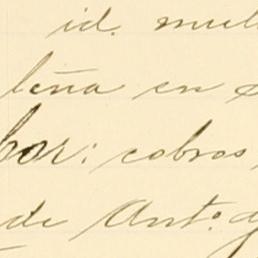 id. mul
leña en
bor: cobros
de Anto.